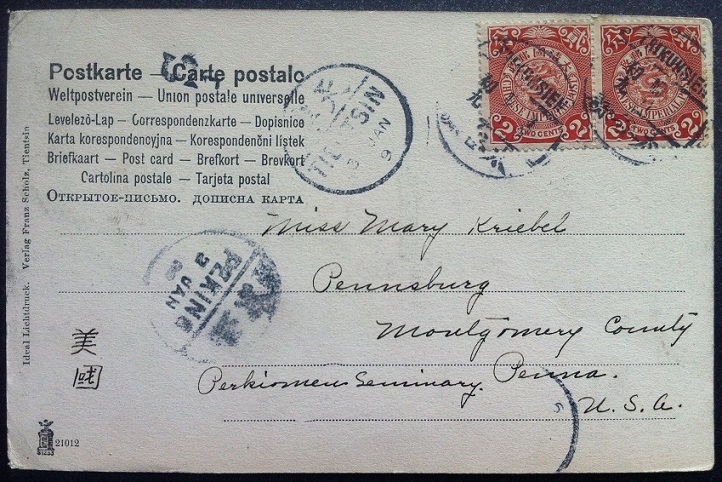 Postkarte — Carte postale
Weltpostverein — Union postale universelle
Levelező-Lap — Correspondenzkarte — Dopisnice
Karta korespondencyjna — Korespondenční listek
Briefkaart — Post card — Brefkort — Brevkort
Cartolina postale — Tarjeta postal
Открытое-письмо. дописна карта
Ideal Lichtdruck. Verlag Franz Scholz, Tientsin
TIENTSIN
3 JAN
TWO CENTS
TWO CENTS
2 2
2 2
PEKING
3 JAN
Miss Mary Kriebel
Pennsburg
Montgomery County
Perkiomen Seminary. Penna.
U. S. A.
美國
21012